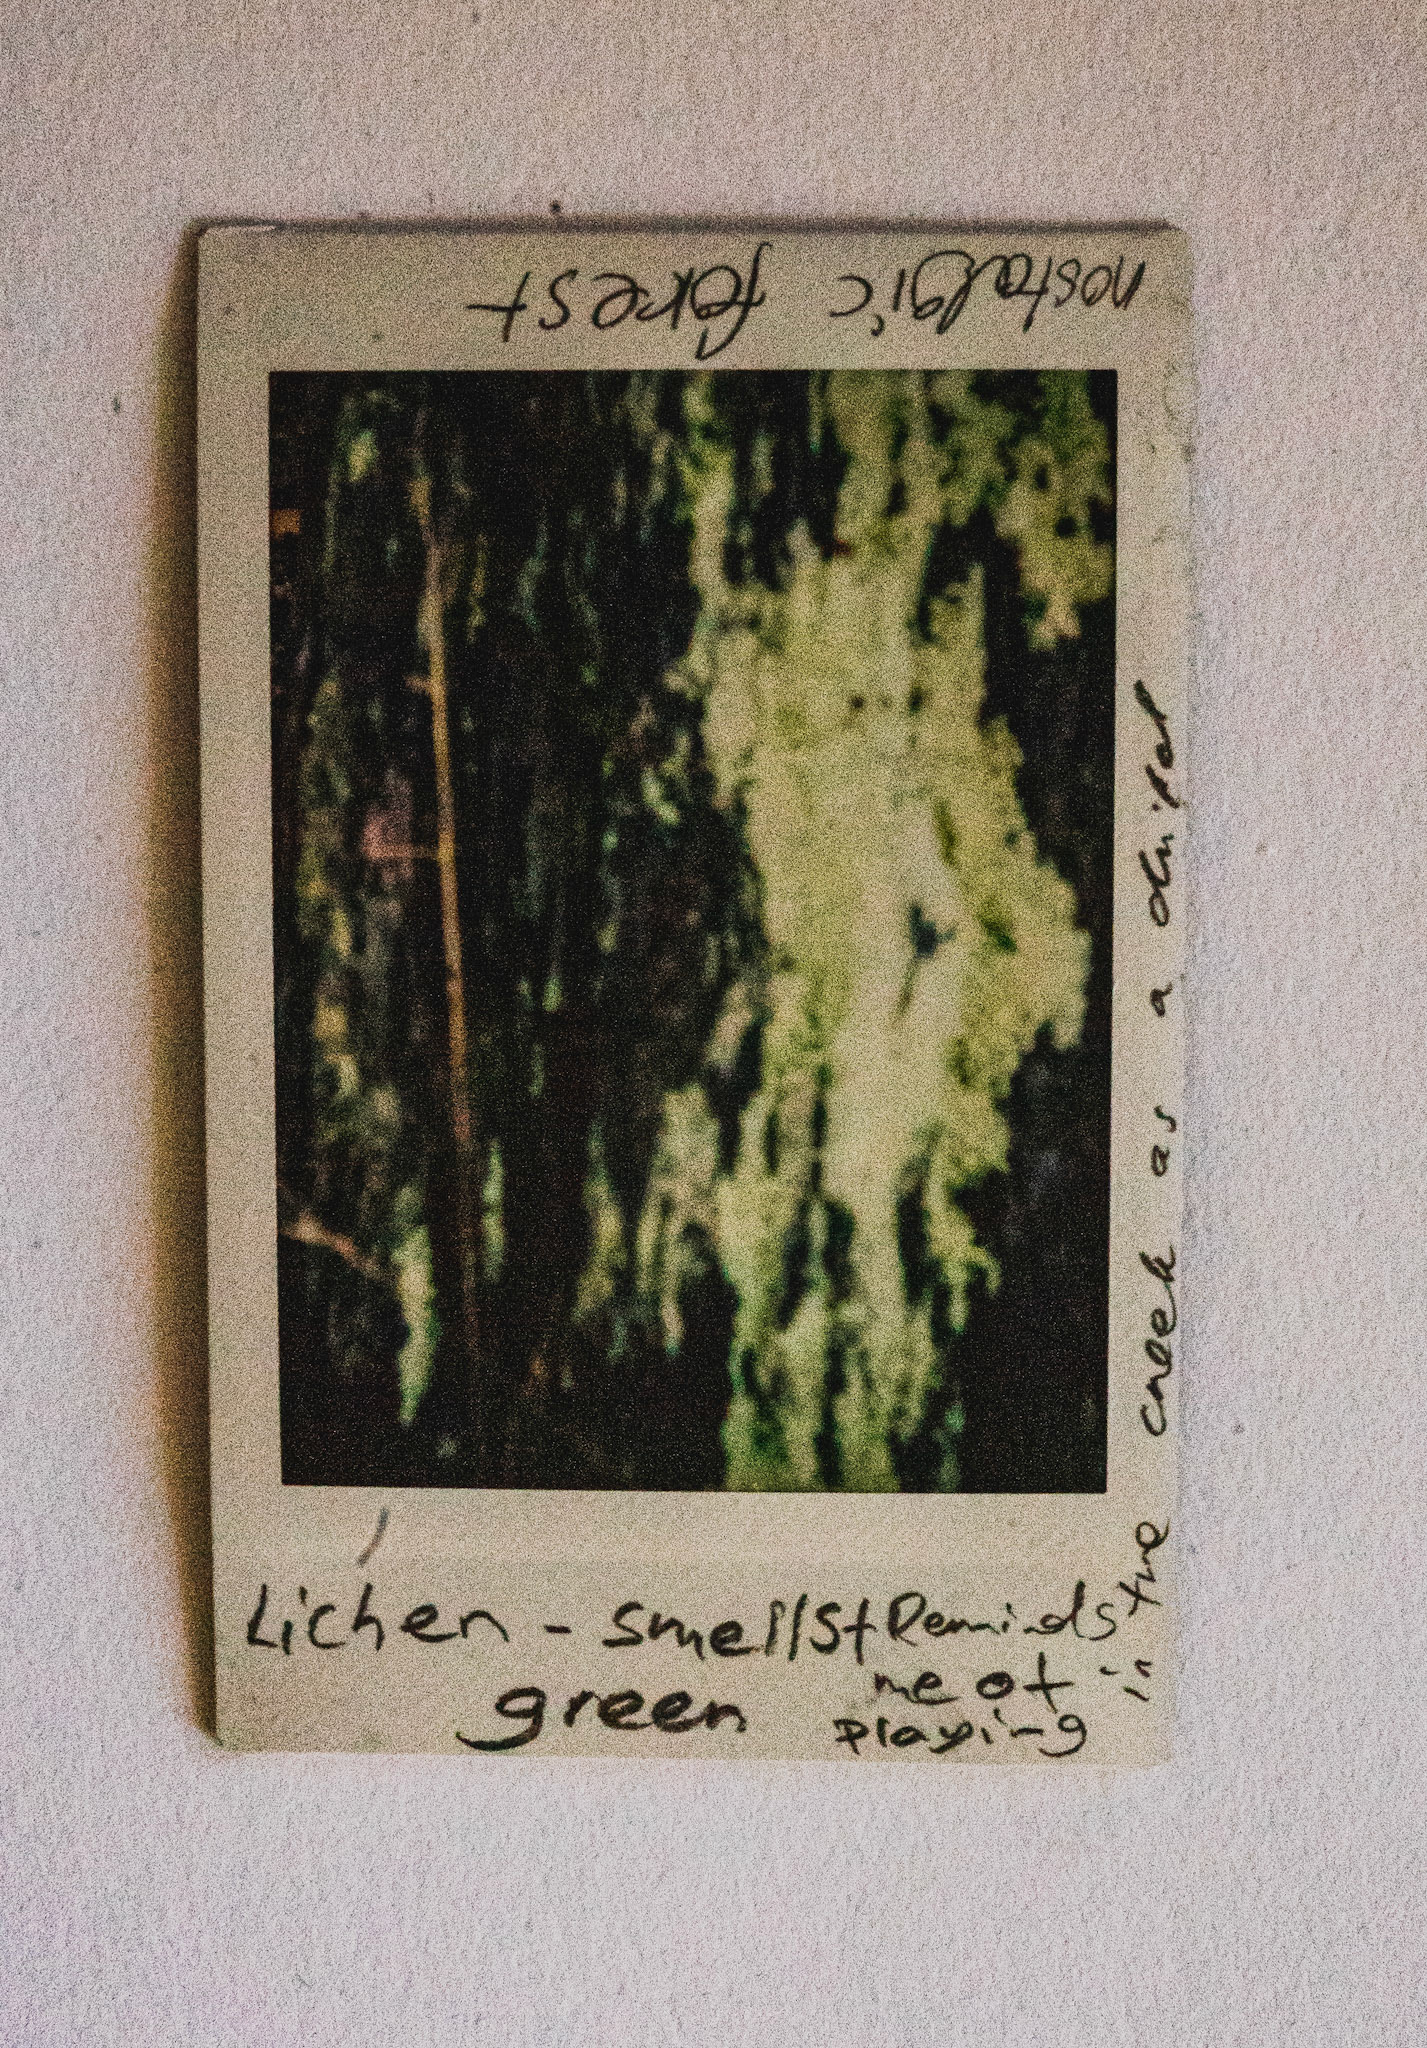 nostalgic forest
Lichen - smells
green
Reminds
me of
playing
in the creek as a